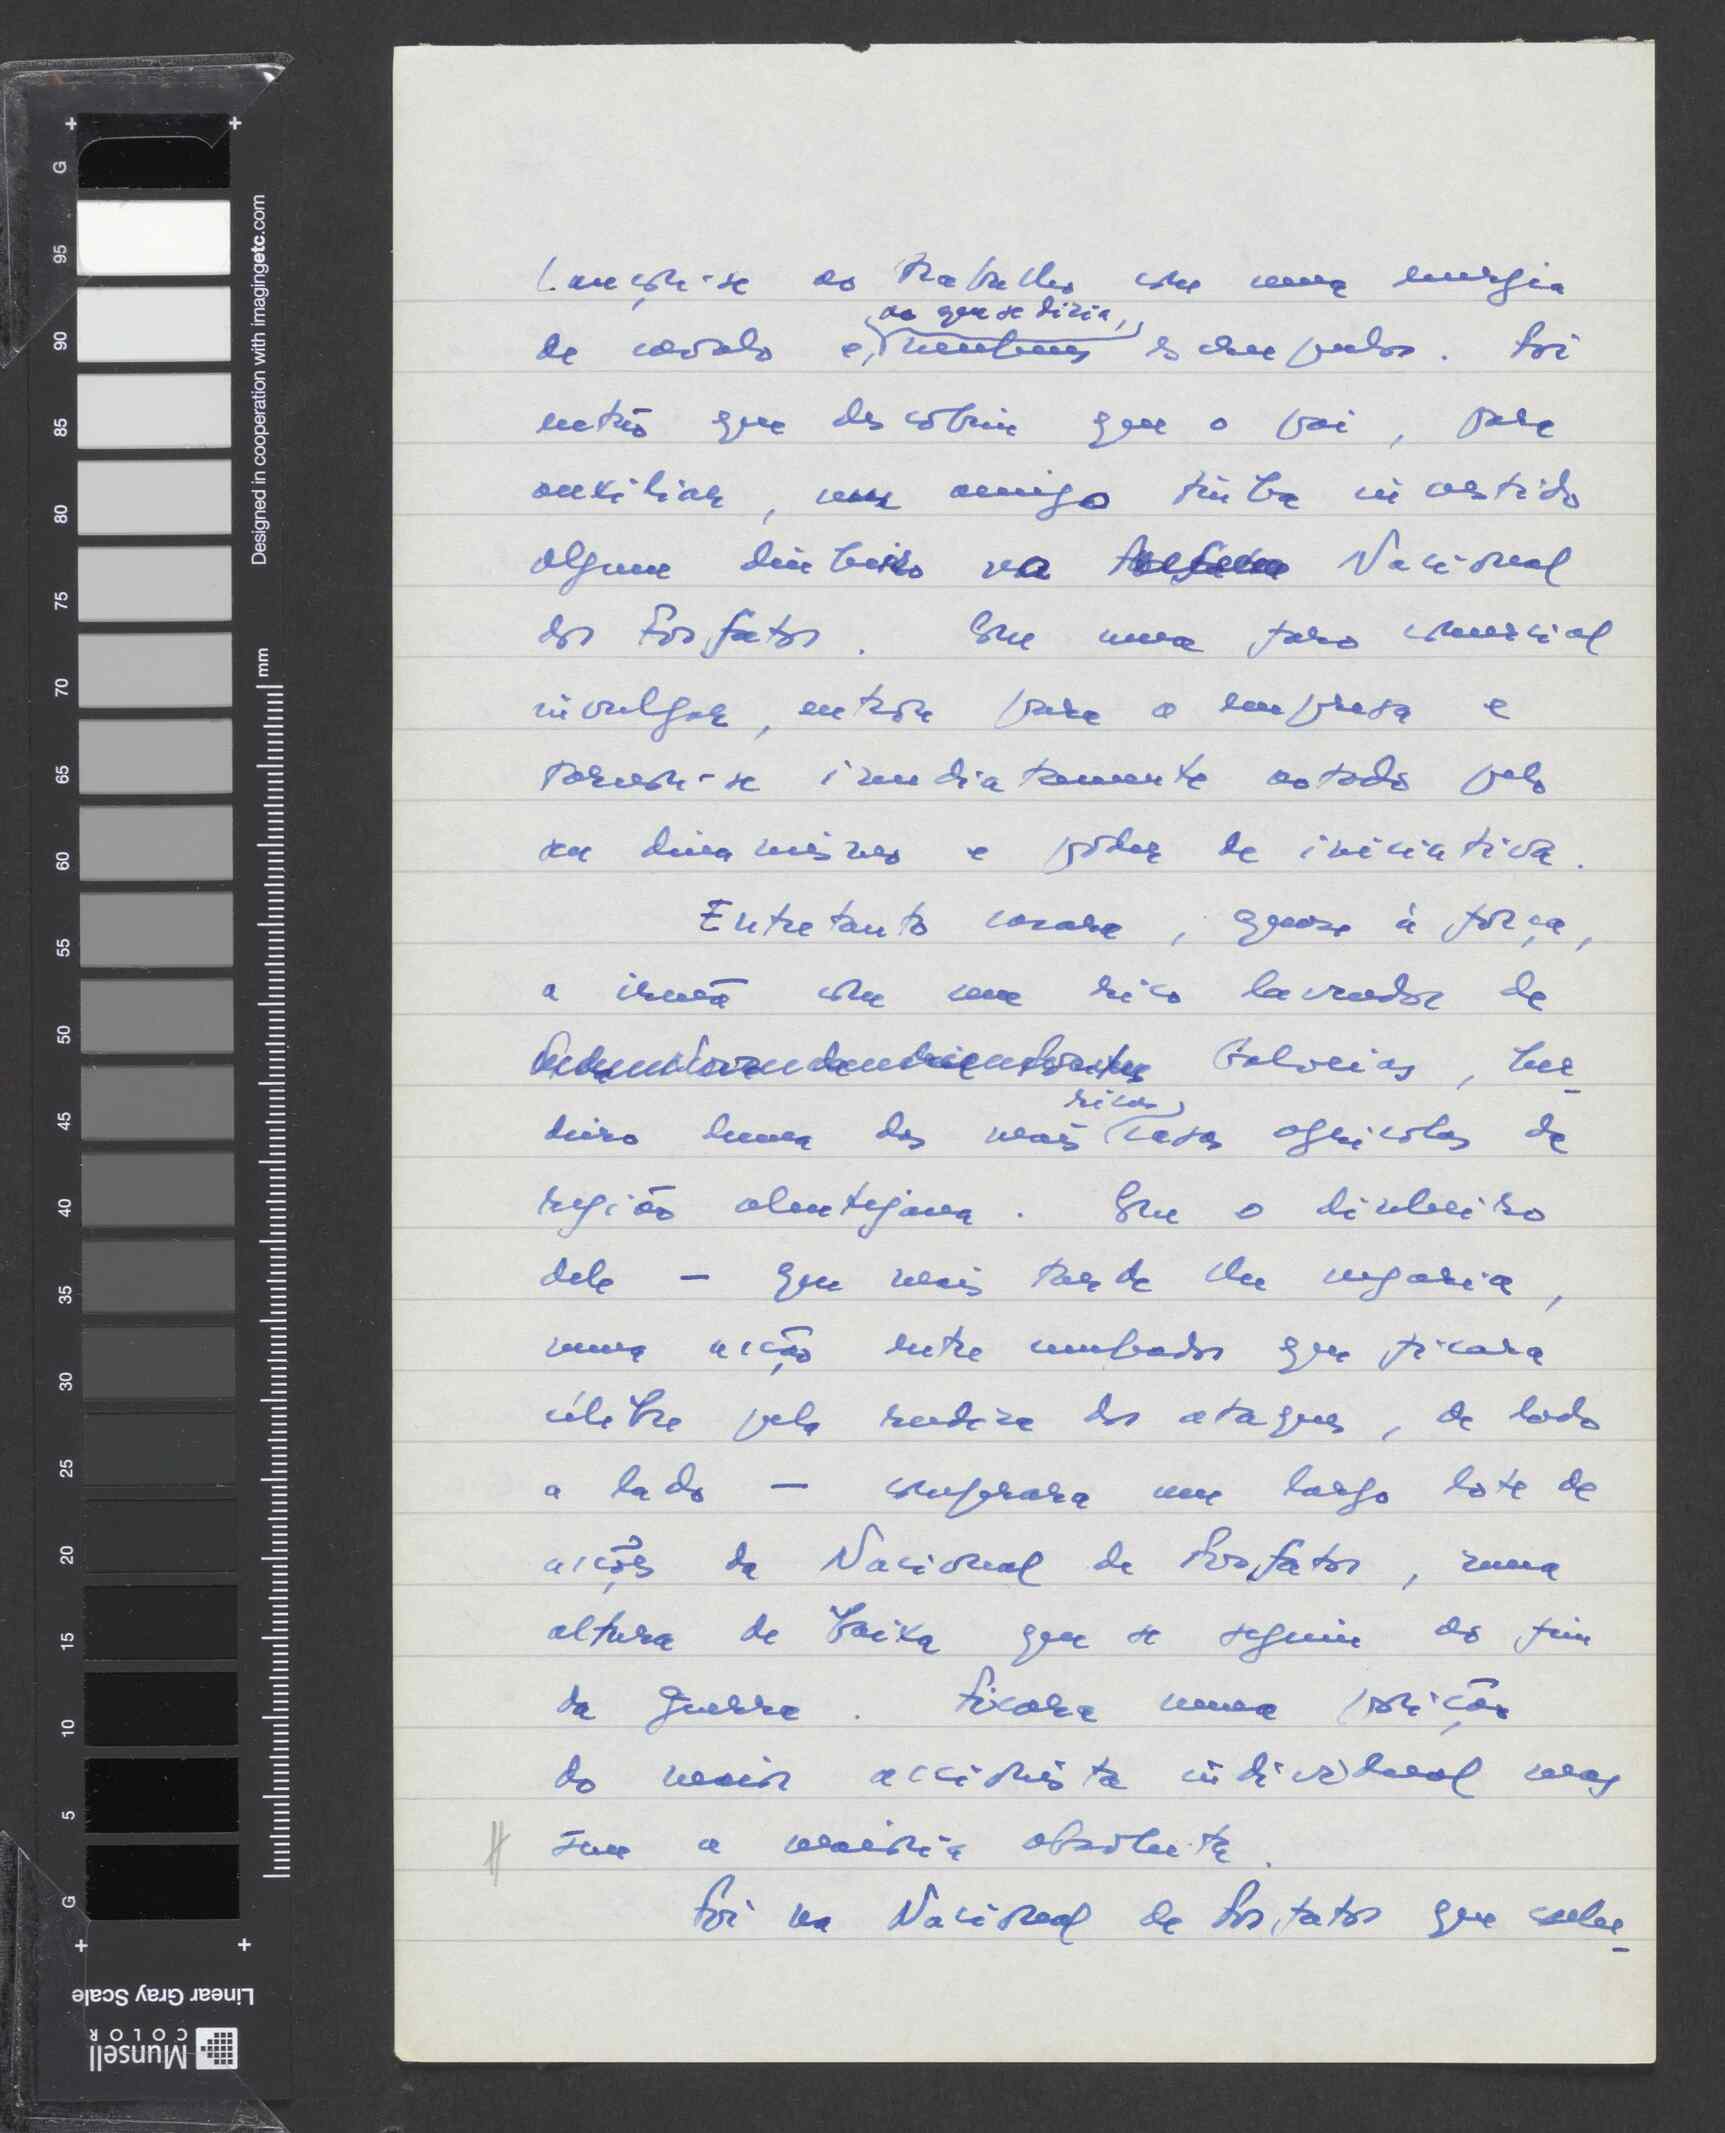 Lançou-se ao trabalho com uma energia
ao que se dizia,
de cavalo e, nenhuns escrupulos. Foi
então que descobriu que o pai, para
auxiliar, um amigo tinha investido
algum dinheiro na Nacional
dos Fosfatos. Com uma faro comercial
invulgar, entrou para a empresa e
tornou-se imediatamente notado pelo
seu dinamismo e pôder de iniciativa.
Entretanto casara, quase à força,
a irmã com um rico lavrador de
Galveias, her-
ricas
deiro duma das mais casas agricolas da
região alentejana. Com o dinheiro
dele – que mais tarde lhe negaria,
numa acção entre cunhados que ficara
célebre pela rudeza dos ataques, de lado
a lado – comprara um largo lote de
acções da Nacional de Fosfatos, numa
altura de baixa que se seguiu ao fim
da guerra. Ficara numa posição
do maior accionista individual mas
sem a maioria absoluta.
Foi na Nacional de Fosfatos que conhe-
G
95
90
85
80
75
70
65
60
55
50
45
40
35
30
25
20
15
10
5
G
mm
Designed in cooperation with imagingetc.com
Linear Gray Scale
Munsell
COLOR